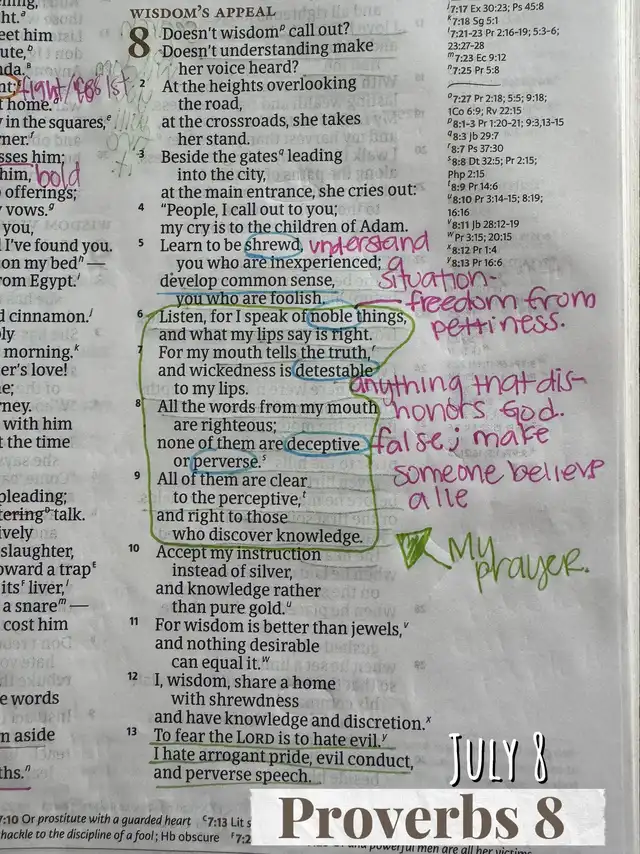 ht.ᵃ
eet him
ute,ᵒ
nda.ᴮ
nt;
t home.
y in the squares,ᵉ
rner.ᶠ
sses him;
him,
offerings;
y vows.ᵍ
you,
I've found you.
on my bedʰ—
rom Egypt.ⁱ
d cinnamon.ʲ
ply
morning.ᵏ
er's love!
e;
rney.
with him
t the time
pleading;
tering talk.
ively
slaughter,
oward a trapᴱ
its liver,ˡ
a snareᵐ —
cost him
e words
n aside
ths.ⁿ
bold
WISDOM'S APPEAL
8 Doesn't wisdomᵖ call out?
Doesn't understanding make
her voice heard?
2 At the heights overlooking
the road,
at the crossroads, she takes
her stand.
3 Beside the gatesᑫ leading
into the city,
at the main entrance, she cries out:
4 "People, I call out to you;
my cry is to the children of Adam.
5 Learn to be shrewd,
you who are inexperienced;
develop common sense,
you who are foolish.
6 Listen, for I speak of noble things,
and what my lips say is right.
7 For my mouth tells the truth,ʳ
and wickedness is detestable
to my lips.
8 All the words from my mouth
are righteous;
none of them are deceptive
or perverse.ˢ
9 All of them are clear
to the perceptive,ᵗ
and right to those
who discover knowledge.
10 Accept my instruction
instead of silver,
and knowledge rather
than pure gold.ᵘ
11 For wisdom is better than jewels,ᵛ
and nothing desirable
can equal it.ʷ
12 I, wisdom, share a home
with shrewdness
and have knowledge and discretion.ˣ
13 To fear the LORD is to hate evil.ʸ
I hate arrogant pride, evil conduct,
and perverse speech.
understand
a
situation-
freedom from
pettiness.
anything that dis-
honors God.
false; make
someone believe
a lie
My
prayer.
ʲ7:17 Ex 30:23; Ps 45:8
ᵏ7:18 Sg 5:1
ˡ7:21-23 Pr 2:16-19; 5:3-6;
23:27-28
ᵐ7:23 Ec 9:12
ⁿ7:25 Pr 5:8
ᵒ7:27 Pr 2:18; 5:5; 9:18;
1Co 6:9; Rv 22:15
ᵖ8:1-3 Pr 1:20-21; 9:3,13-15
ᑫ8:3 Jb 29:7
ʳ8:7 Ps 37:30
ˢ8:8 Dt 32:5; Pr 2:15;
Php 2:15
ᵗ8:9 Pr 14:6
ᵘ8:10 Pr 3:14-15; 8:19;
16:16
ᵛ8:11 Jb 28:12-19
ʷPr 3:15; 20:15
ˣ8:12 Pr 1:4
ʸ8:13 Pr 16:6
JULY 8
Proverbs 8
7:10 Or prostitute with a guarded heart ᶜ7:13 Lit
shackle to the discipline of a fool; Hb obscure
powerful men are all her victims